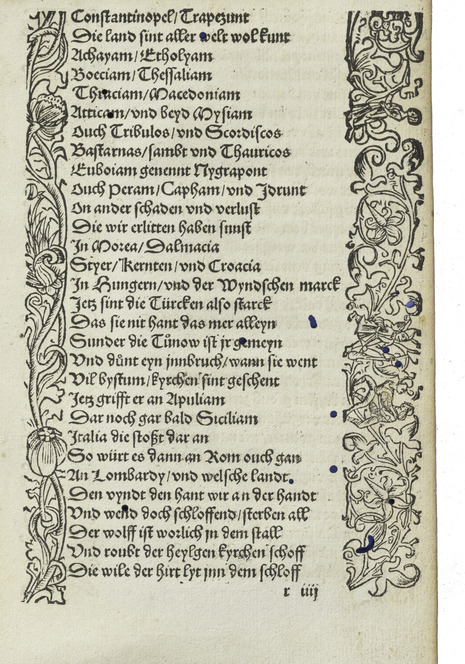 Constantinopel/Trapezunt
Die land sint aller welt wol kunt
Achayam/Etholyam
Boeciam/Thessaliam
Thraciam/Macedoniam
Atticam/vnd beyd Mysiam
Ouch Tribulos/vnd Scordiscos
Bastarnas/sambt vnd Thauricos
Euboiam genennt Nygrapont
Ouch Peram/Capham/vnd Jdrunt
On ander schaden vnd verlust
Die wir erlitten haben sunst
Jn Morea/Dalmacia
Styer/Kernten/vnd Croacia
Jn Hungern/vnd der Wyndschen marck
Jetz sint die Türcken also starck
Das sie nit hant das mer alleyn
Sunder die Tůnow ist jr gemeyn
Vnd důnt eyn jnnbruch/wann sie went
Vil bystum/kyrchen sint geschent
Jetz grifft er an Apuliam
Dar noch gar bald Siciliam
Jtalia die stoßt dar an
So würt es dann an Rom ouch gan
An Lombardy/vnd welsche landt
Den vyndt den hant wir an der handt
Vnd wend doch schloffend/sterben all
Der wolff ist worlich jn dem stall
Vnd roubt der heylgen kyrchen schoff
Die wile der hirt lyt jnn dem schloff
r iiij